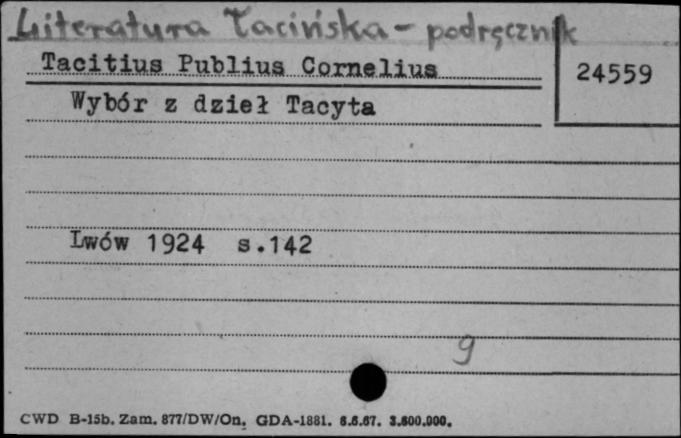 Literatura Łacińska - podręcznik
Tacitius Publius Cornelius
24559
Wybór z dzieł Tacyta
Lwów 1924 s.142
9
CWD B-15b. Zam. 877/DW/On, GDA-1881. 6.6.67. 3.600.000.